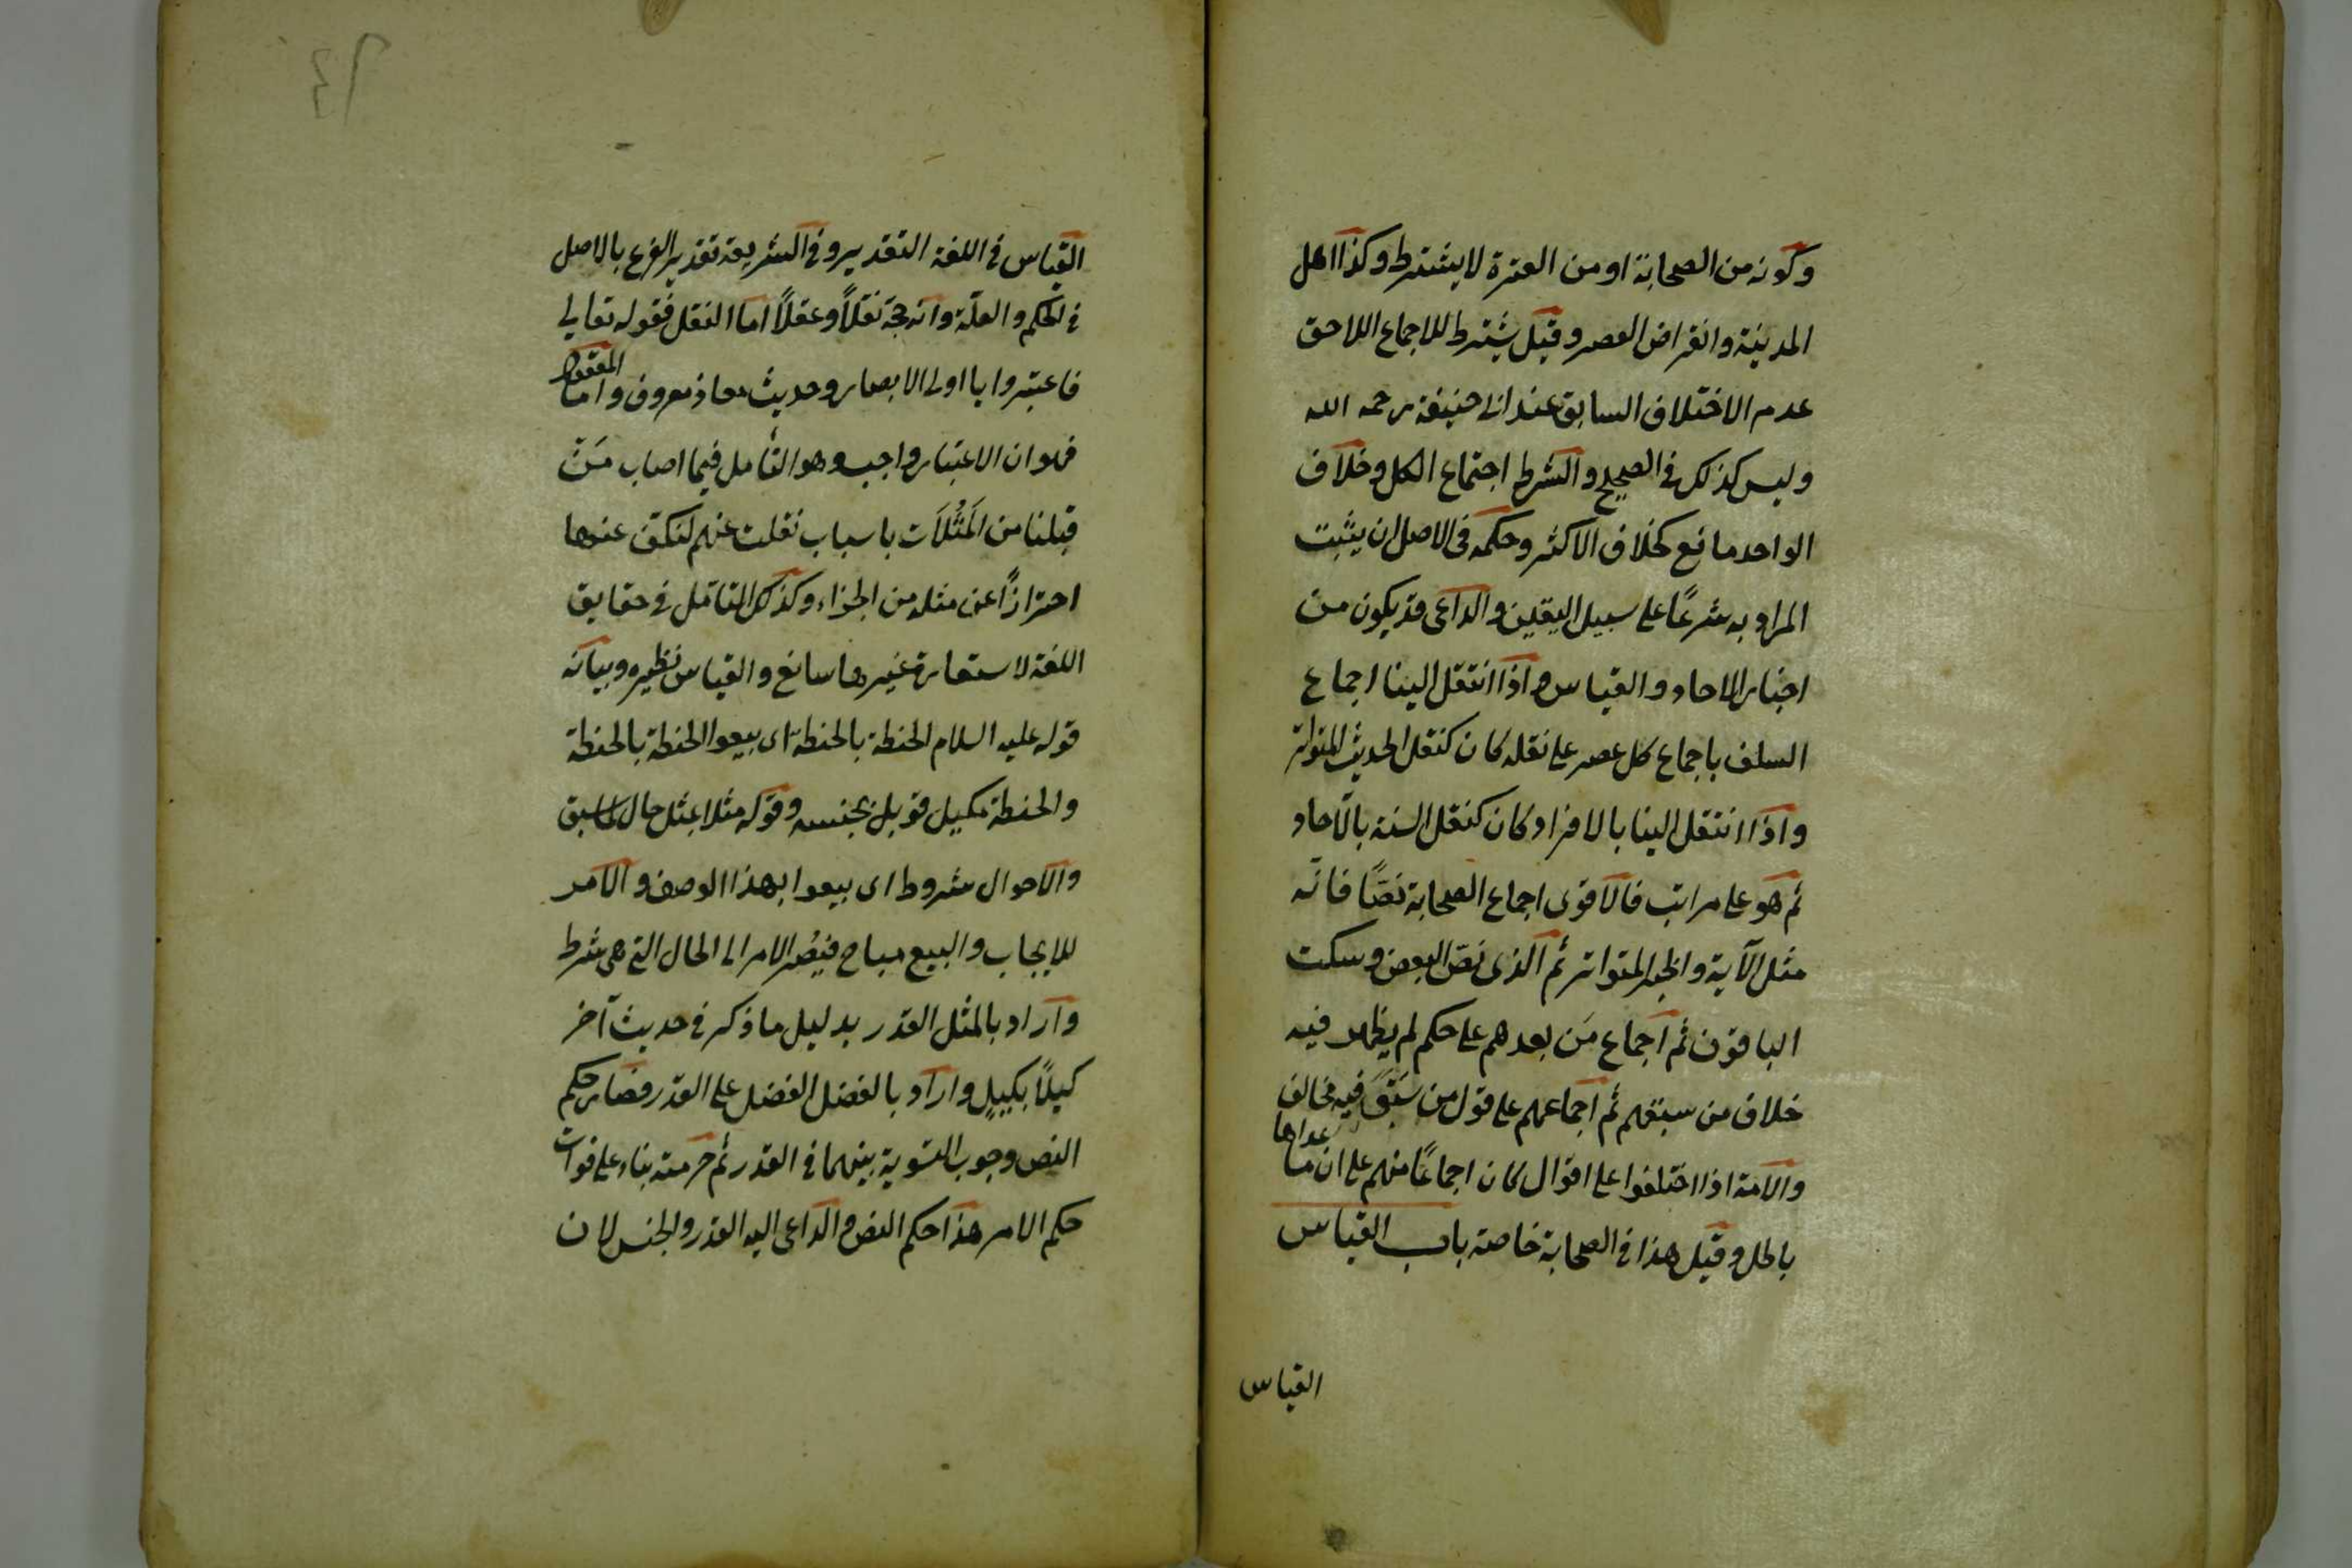 وكونه من الصحابة او من العترة لا يشترط وكذا اهل
المدينة وانقراض العصر وقيل يشترط للاجماع اللاحق
عدم الاختلاف السابق عند ابى حنيفة رحمه الله
وليس كذلك فى الصحيح والشرط اجتماع الكل وخلاف
الواحد مانع كخلاف الاكثر وحكمه فى الاصل ان يثبت
المراد به شرعًا على سبيل اليقين والداعى قد يكون من
اخبار الاحاد والقياس واذا انتقل الينا اجماع
السلف باجماع كل عصر على نقله كان كنقل الحديث المتواتر
واذا انتقل الينا بالافراد كان كنقل السنة بالآحاد
ثم هو على مراتب فالاقوى اجماع الصحابة نصًّا فانه
مثل الآية والخبر المتواتر ثم الذى نصّ البعض وسكت
الباقون ثم اجماع مَن بعدهم على حكم لم يظهر فيه
خلاف من سبقهم ثم اجماعهم على قول من سَبَقَ فيه مخالف
والامة اذا اختلفوا على اقوال كان اجماعًا منهم على ان ما عداها
باطل وقيل هذا فى الصحابة خاصة باب القياس
القياس
القياس فى اللغة التقدير وفى الشريعة تقدير الفرع بالاصل
فى الحكم والعلّة وانه حجة نقلًا وعقلًا اما النقل فقوله تعالى
فاعتبروا يا اولى الابصار وحديث معاذ معروف واما المعقول
فهو ان الاعتبار واجب وهو التأمل فيما اصاب مَن
قبلنا من المَثُلَات باسباب نقلت عنهم لنكف عنها
احترازًا عن مثله من الجزاء وكذلك التأمّل فى حقايق
اللغة لاستعارة غيرها سائغ والقياس نظيره وبيانه
قوله عليه السلام الحنطة بالحنطة اى بيعوا الحنطة بالحنطة
والحنطة مكيل قوبل بجنسه وقوله مثلا بمثل حال لما سبق
والاحوال شروط اى بيعوا بهذا الوصف والامر
للايجاب والبيع مباح فيُصْرَ الامر الى الحال التى هى شرط
واراد بالمثل القدر بدليل ما ذكر فى حديث آخر
كيلًا بكيلٍ واراد بالفضل الفضل على القدر فصار حكم
النص وجوب التسوية بينهما فى القدر ثم حرمته بناء على فوات
حكم الامر هذا حكم النص والداعى اليه القدر والجنس لان